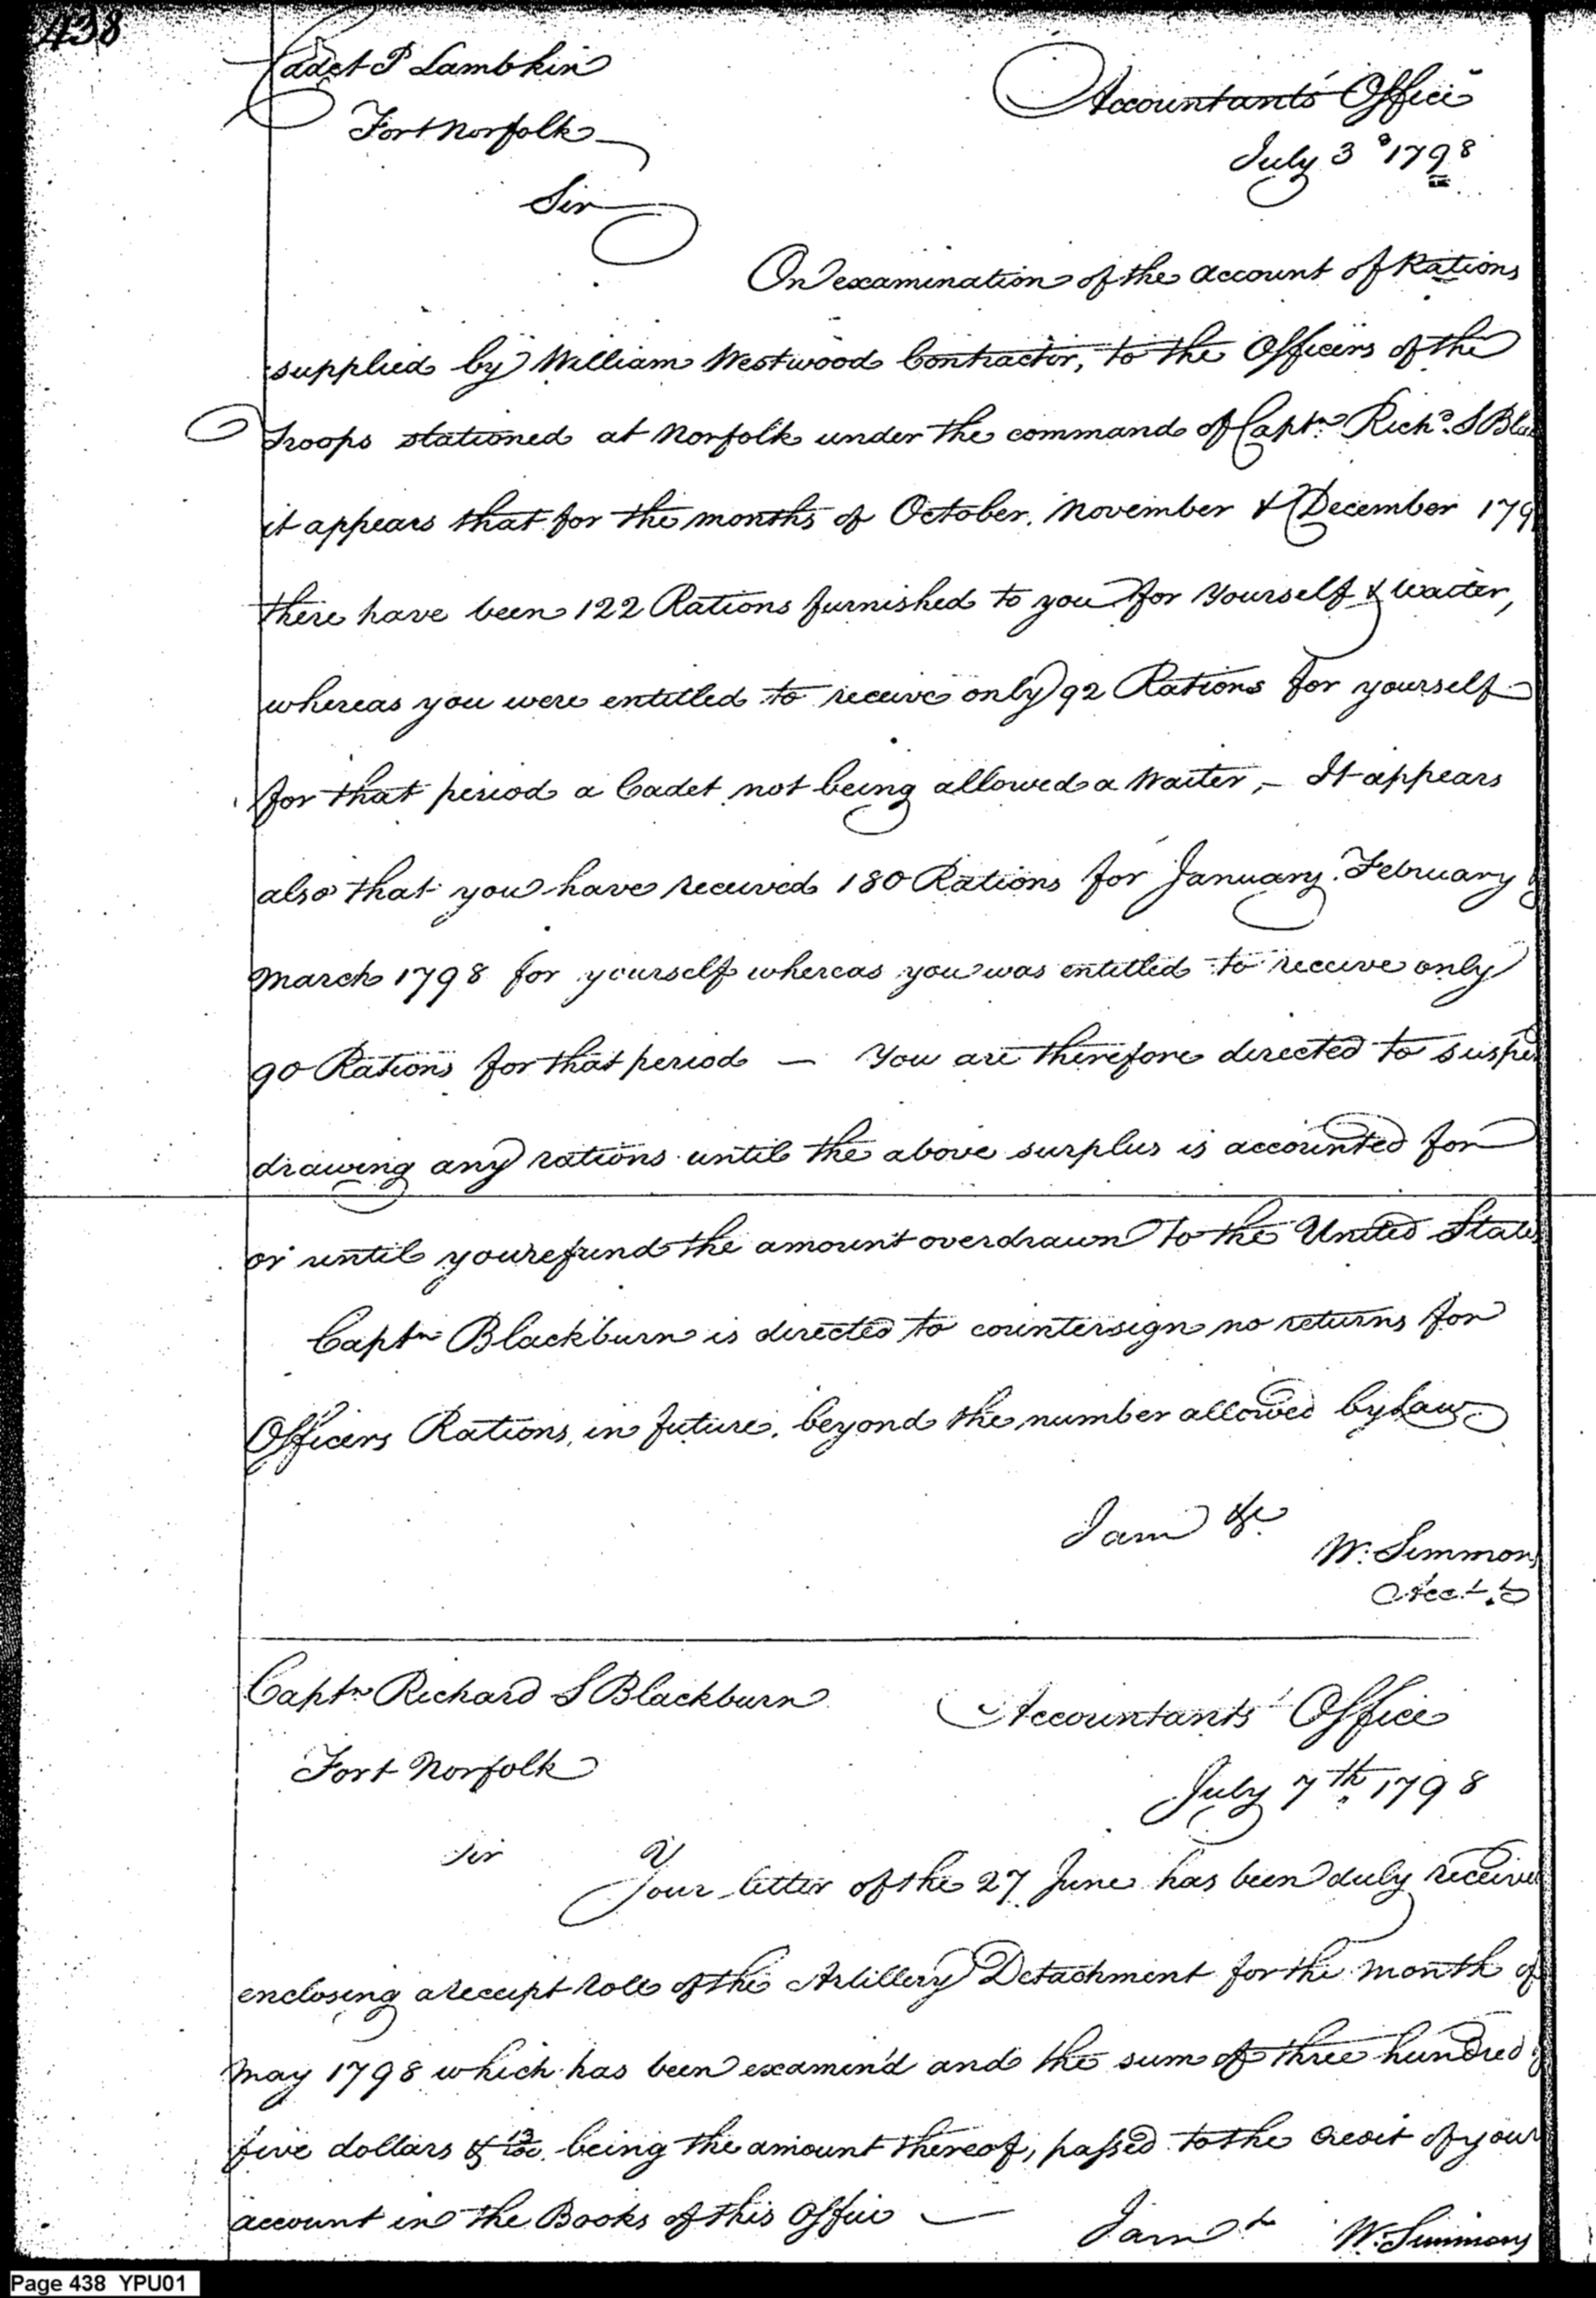 438
Cadet P Lambkin
Accountants' Office
Fort Norfolk
July 3d 1798
Sir
On examination of the account of Rations
supplied by William Westwood Contractor, to the Officers of the
Troops stationed at Norfolk under the command of Captn. Richd. S Bla
it appears that for the months of October, November & December 179
there have been 122 Rations furnished to you for Yourself & Waiter,
whereas you were entitled to receive only 92 Rations for yourself
for that period a Cadet not being allowed a Waiter, – It appears
also that you have received 180 Rations for January, February &
March 1798 for yourself whereas you was entitled to receive only
90 Rations for that period — You are therefore directed to suspe
drawing any rations until the above surplus is accounted for
or until you refund the amount overdrawn to the United States
Captn Blackburn is directed to countersign no returns for
Officers Rations, in future, beyond the number allowed by Law
I am &c
W. Simmons
Acct.
Captn Richard S Blackburn
Accountants' Office
Fort Norfolk
July 7th 1798
Sir
Your letter of the 27 June has been duly receive
enclosing a receipt roll of the Artillery Detachment for the month of
May 1798 which has been examin'd and the sum of three hundred &
five dollars & being the amount thereof, passed to the credit of your
account in the Books of this Office —
I am
W. Simmons
Page 438 YPU01